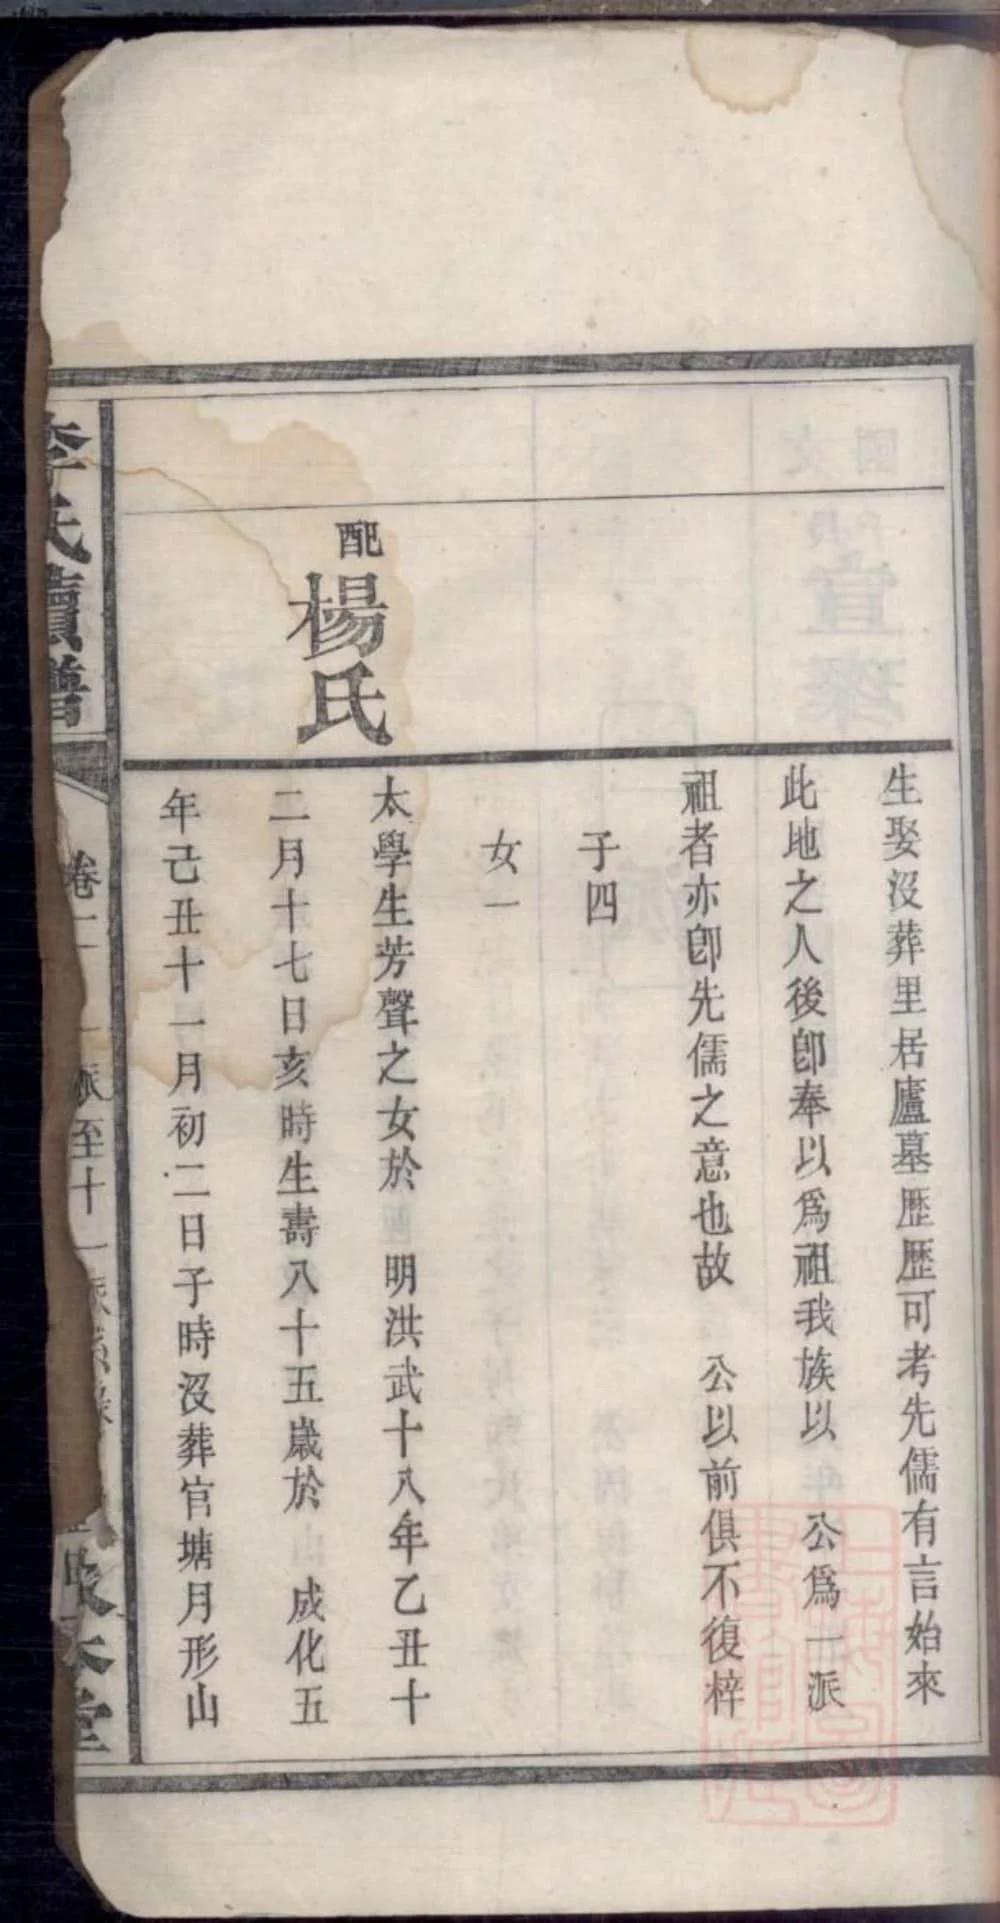 生娶沒葬里居廬墓歷歷可考先儒有言始來
此地之人後卽奉以爲祖我族以 公爲一派
祖者亦卽先儒之意也故 公以前俱不復梓
子四
女一
配楊氏
太學生芳聲之女於 明洪武十八年乙丑十
二月十七日亥時生壽八十五歲於 成化五
年己丑十一月初二日子時沒葬官塘月形山
李氏續譜
卷
派至十一
敦本堂